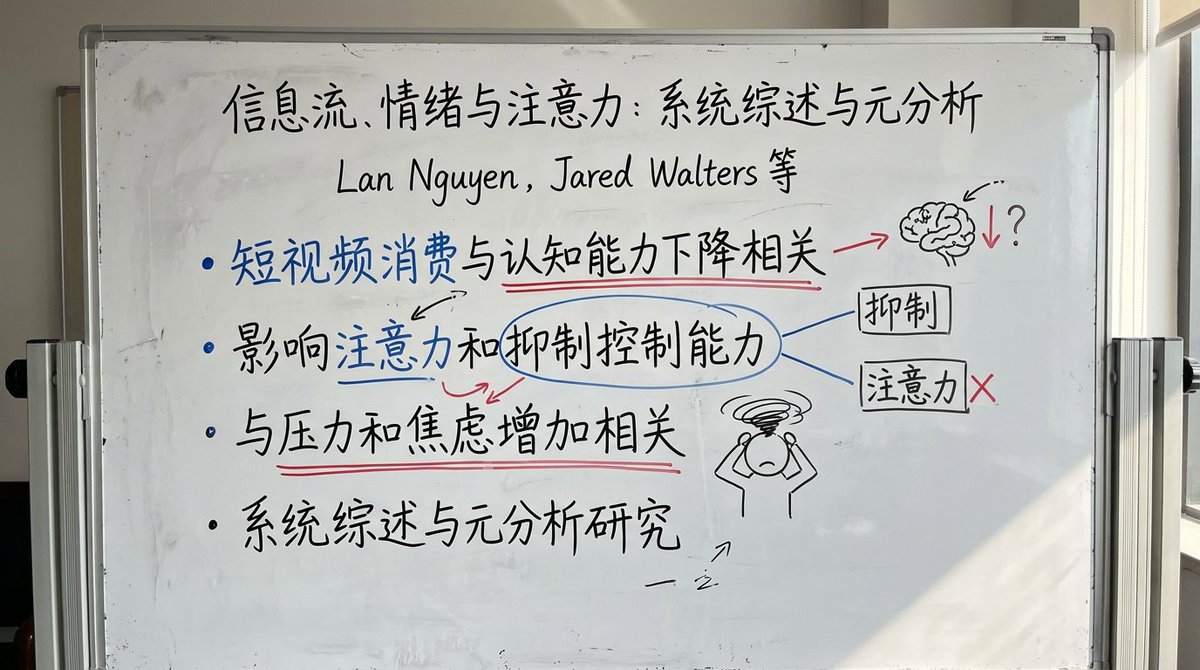 信息流、情绪与注意力：系统综述与元分析
Lan Nguyen, Jared Walters 等
• 短视频消费与认知能力下降相关
?
• 影响注意力和抑制控制能力
抑制
注意力 X
• 与压力和焦虑增加相关
• 系统综述与元分析研究